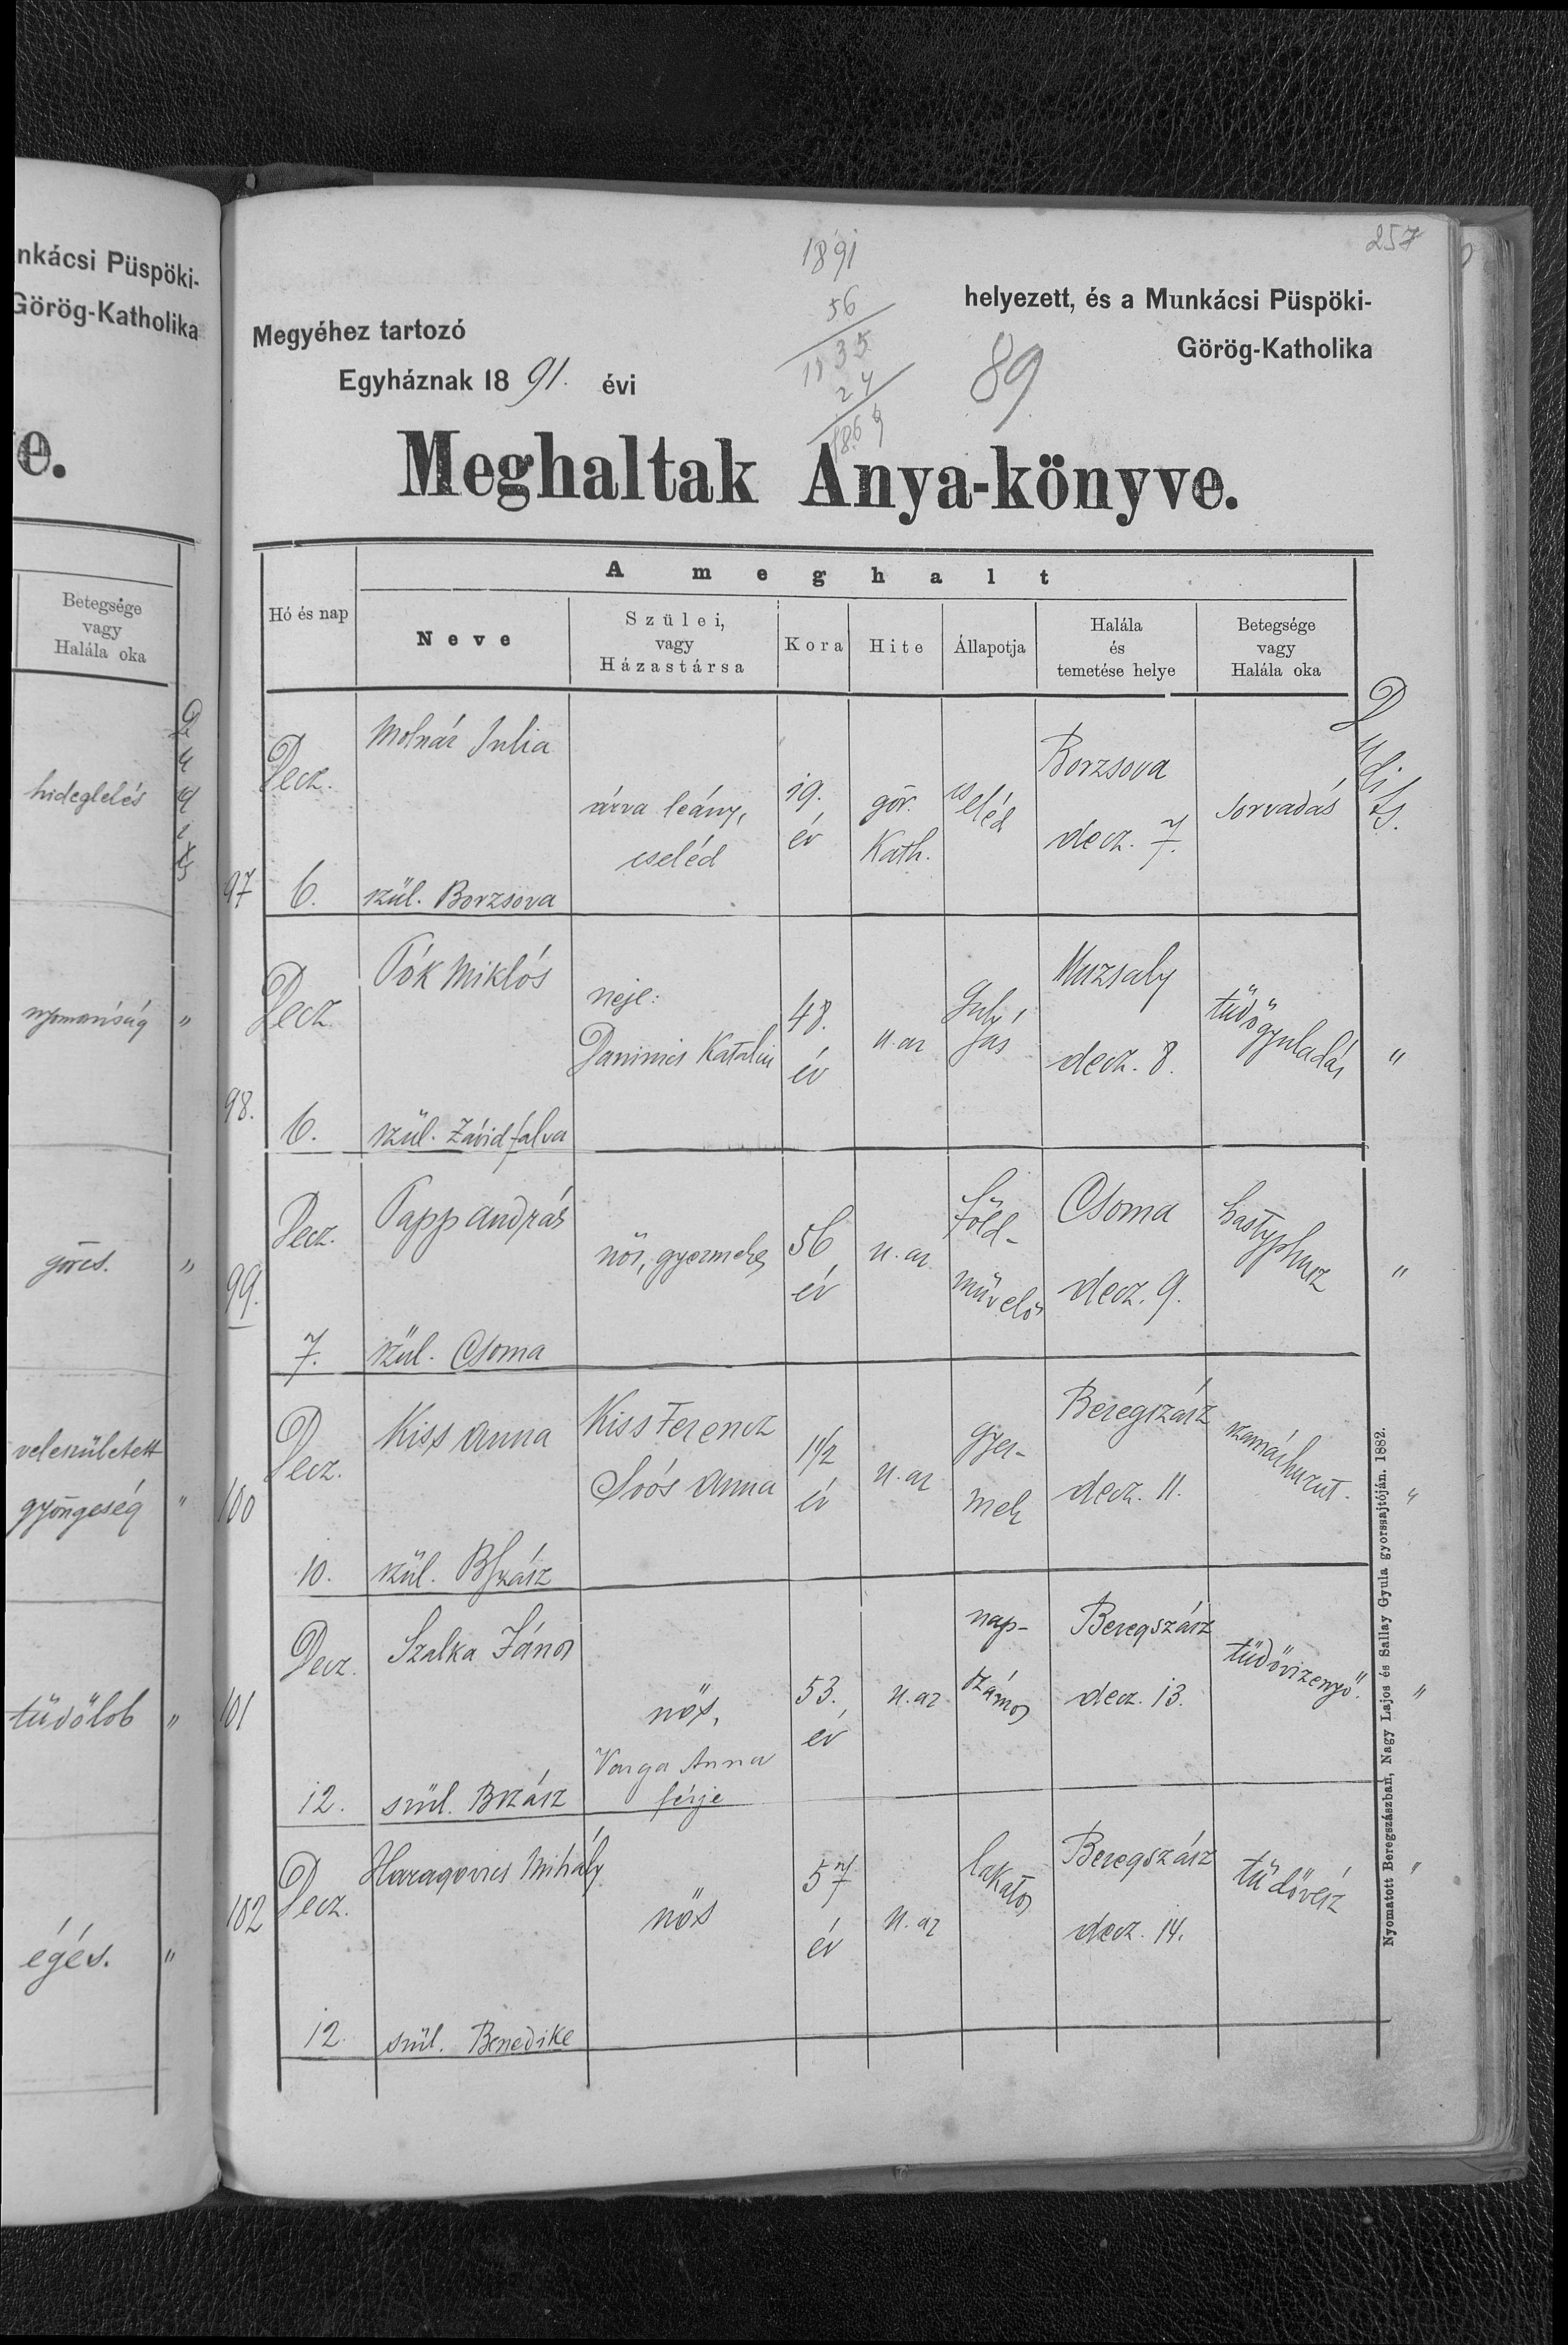 nkácsi Püspöki-
Görög-Katholika
e.
Betegsége
vagy
Halála oka
hideglelés
nyomorúság "
görcs. "
veleszületett
gyöngeség "
tüdőlob "
égés. "
257
1891
56
1835
24
89
helyezett, és a Munkácsi Püspöki-
Görög-Katholika
Megyéhez tartozó
Egyháznak 1891. évi
Meghaltak Anya-könyve.
A meghalt
Hó és nap
Neve
Szülei,
vagy
Házastársa
Kora
Hite
Állapotja
Halála
és
temetése helye
Betegsége
vagy
Halála oka
97
Decz.
6.
Molnár Julia
szül. Borzsova
árva leány,
cseléd
19.
év
gör.
Kath.
cseléd
Borzsova
decz. 7.
sorvadás
98.
Decz.
6.
Pók Miklós
szül. Závidfalva
neje:
Daninics Katalin
48.
év
u. az
Gulyás
Muzsaly
decz. 8.
tüdőgyuladás
"
99.
Decz.
7.
Papp András
szül. Csoma
nős, gyermekes
56
év
u. az
Föld-
művelő
Csoma
decz. 9.
hastyphusz
"
100
Decz.
10.
Kiss Anna
szül. Bszász
Kiss Ferencz
Soós Anna
1 1/2
év
u. az
gyer-
mek
Beregszász
decz. 11.
szamárhurut.
"
101
Decz.
12.
Szalka János
szül. Bszász
nős,
Varga Anna
férje
53.
év
u. az
nap-
számos
Beregszász
decz. 13.
tüdővizenyő.
"
102
Decz.
12.
Haragovics Mihály
szül. Benedike
nős
57
év
u. az
lakatos
Beregszász
decz. 14.
tüdővész
"
Nyomatott Beregszászban, Nagy Lajos és Sallay Gyula gyorssajtóján. 1882.